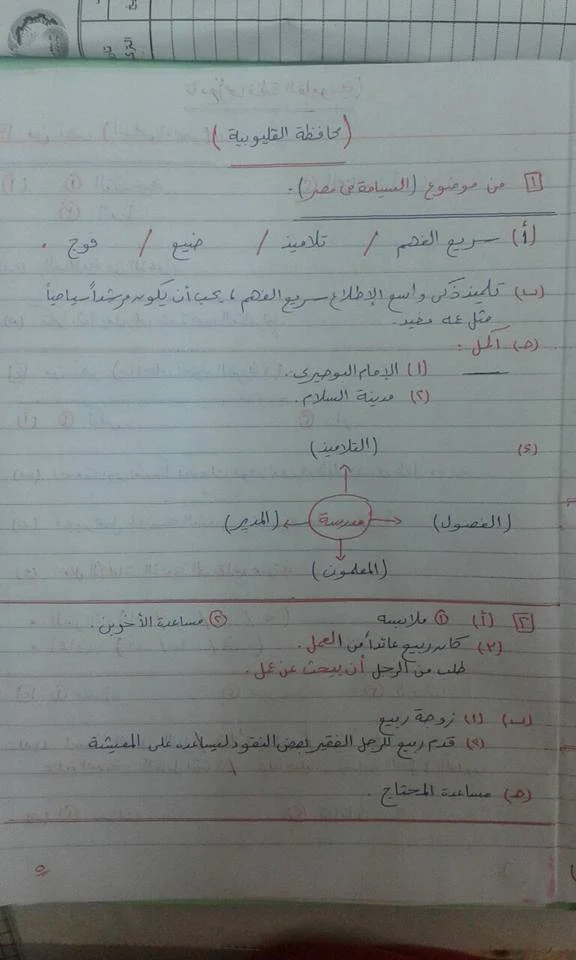 (محافظة القليوبية)
١ من موضوع (السياحة فى مصر).
(أ) سريع الفهم / تلاميذ / ضيع / فوج .
(ب) تلميذ ذكى واسع الإطلاع سريع الفهم ، يحب أن يكون مرشداً سياحياً
مثل عمه مفيد.
(جـ) أكمل :
(١) الإمام البوصيرى.
(٢) مدينة السلام.
(د) (التلاميذ)
(الفصول) مدرسة (المدير)
(المعلمون)
٢ (أ) ① ملابسه ② مساعدة الأخرين.
(٢) كان ربيع عائداً من العمل.
طلب من الرجل أن يبحث عن عمل.
(ب) (١) زوجة ربيع
(٢) قدم ربيع للرجل الفقير بعض النقود ليساعده على المعيشة
(جـ) مساعدة المحتاج .
٥